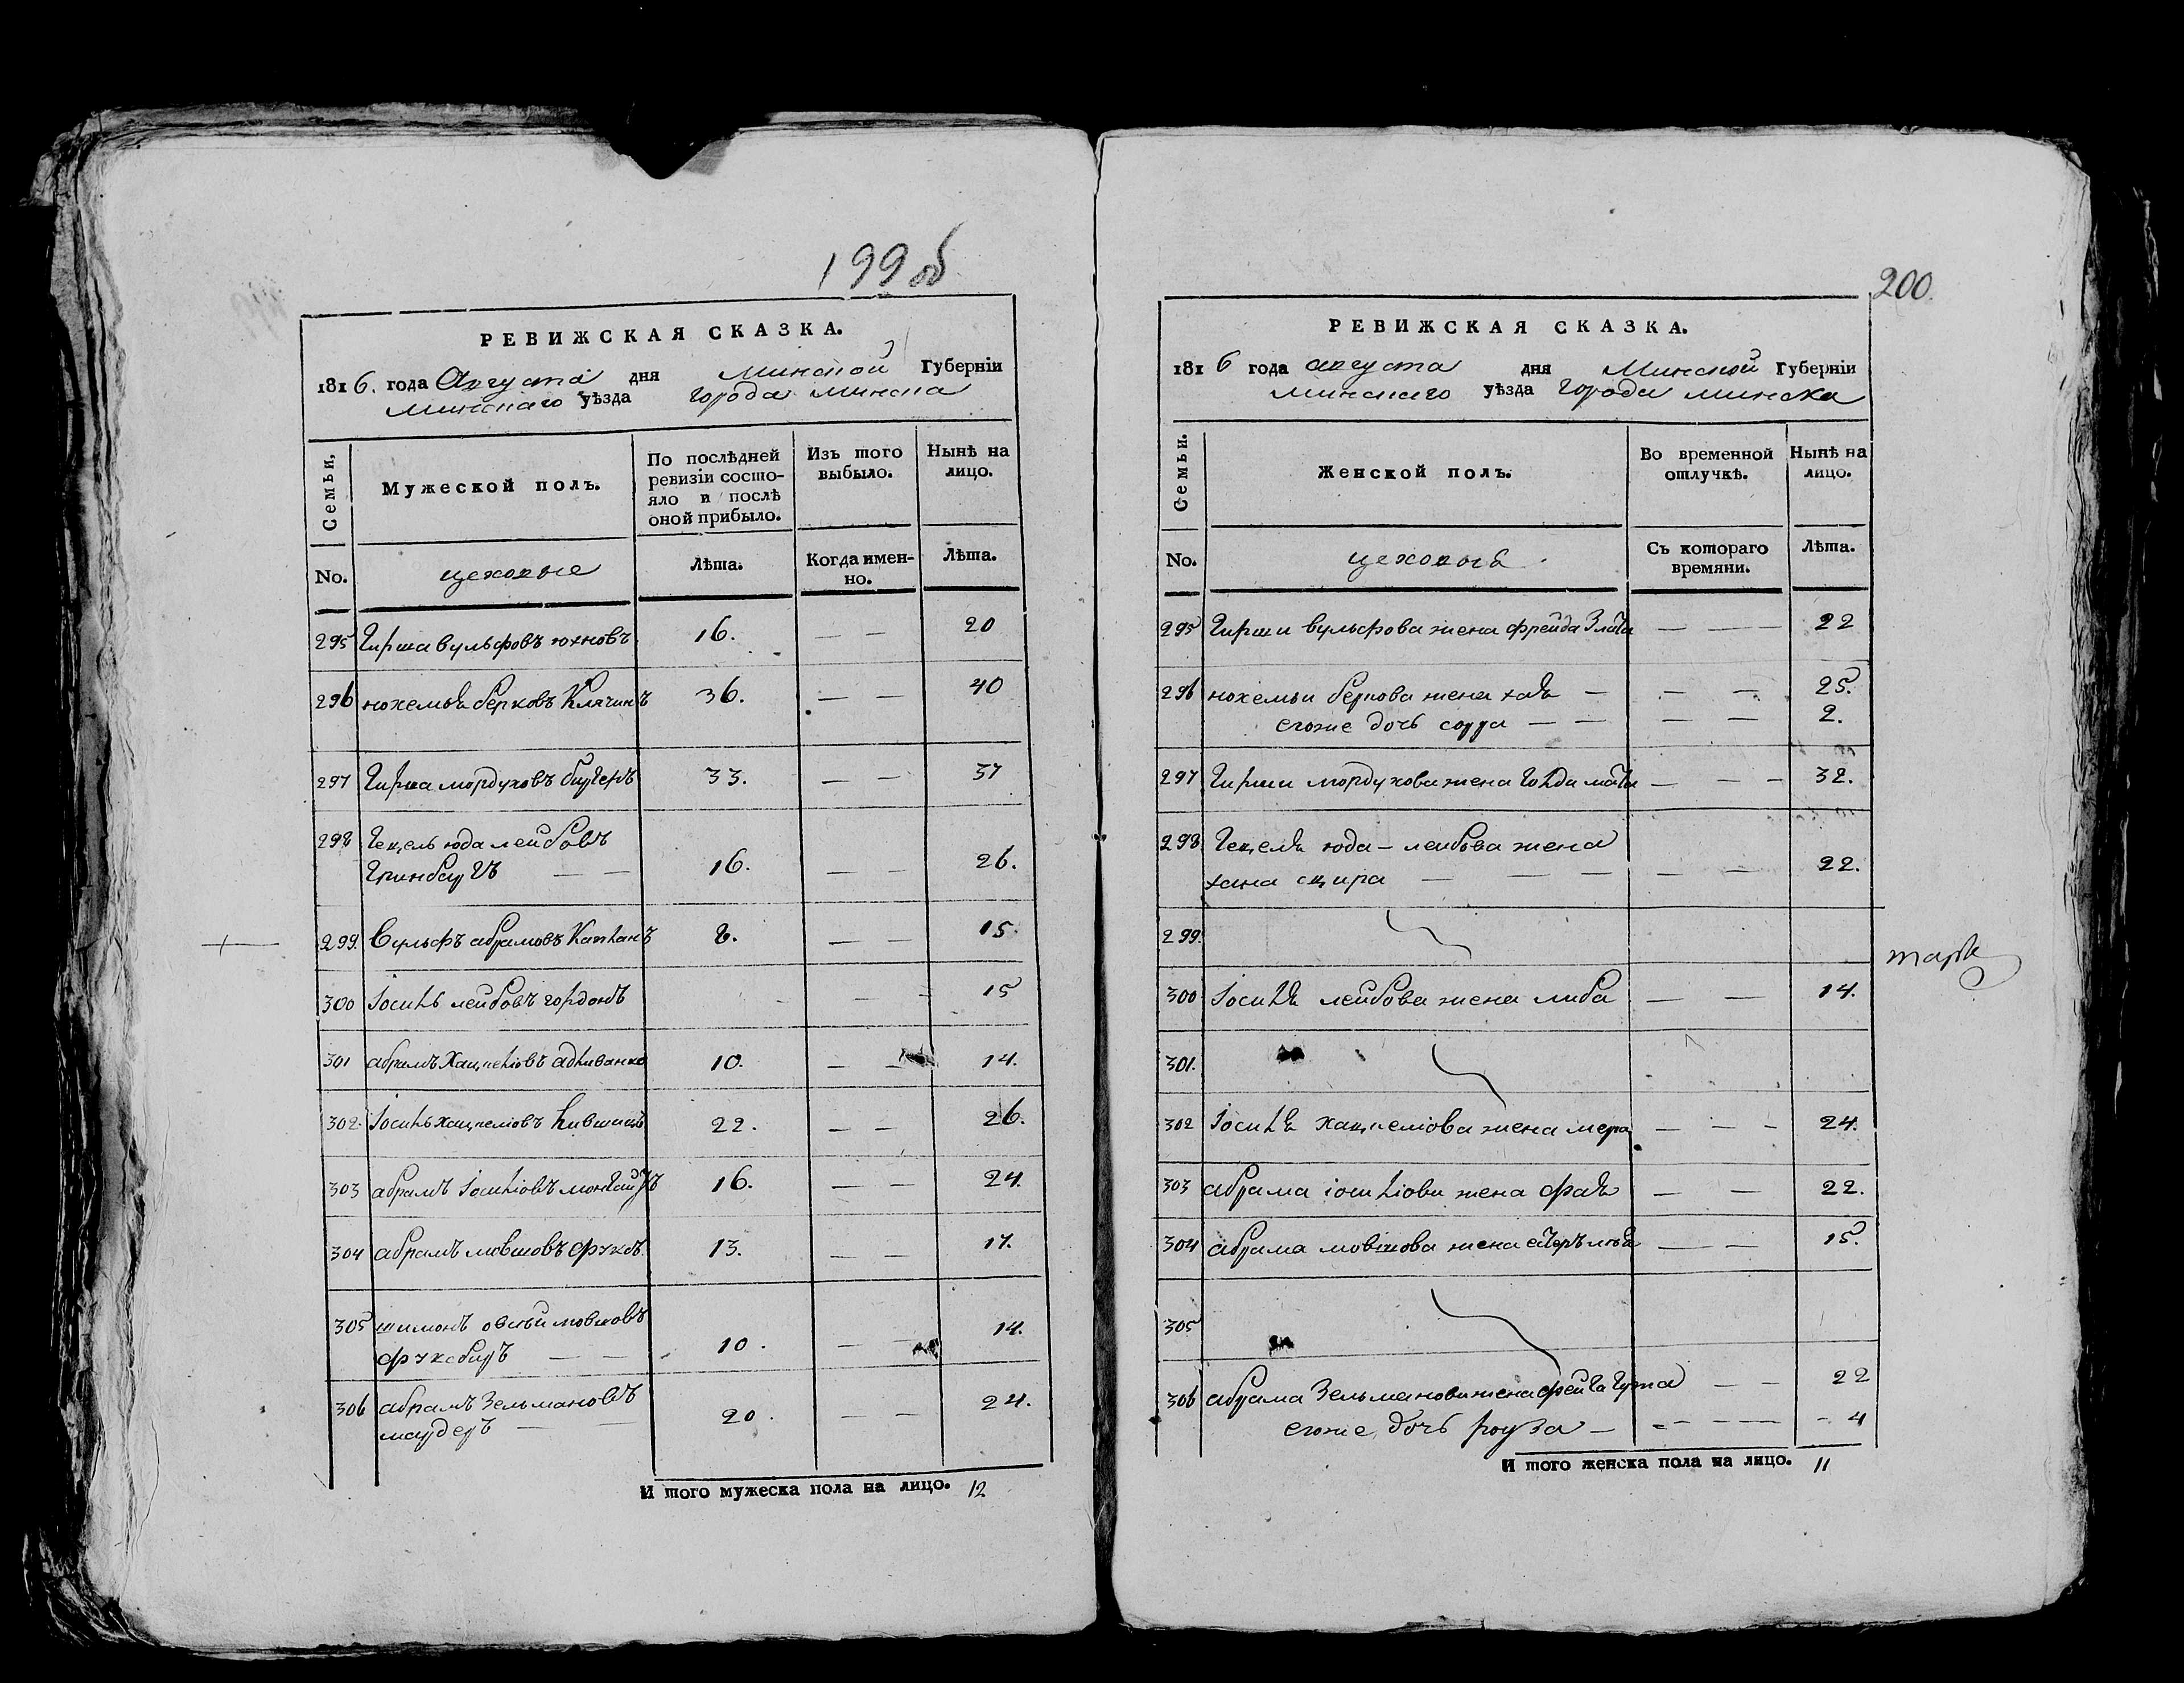 199 об
РЕВИЖСКАЯ СКАЗКА.
1816. года Августа дня Минской Губерніи
Минскаго уѣзда города Минска
Семьи,
Мужеской полъ.
По послѣдней ревизіи состо-
яло и послѣ
оной прибыло.
Изъ того выбыло.
Нынѣ на лицо.
No.
цеховые
Лѣта.
Когда имен-
но.
Лѣта.
295 Гирша вульфовъ юхновъ 16. — — 20
296 нохемья берковъ Клячинъ 36. — — 40
297 Гирша мордуховъ 33. — — 37
298 Гецель юда лейбовъ
Гринбаргъ — — 16. — — 26.
299. Вульфъ абрамовъ Капланъ 8. — — 15.
300 Іосиль лейбовъ гордонъ — — 15
301 абрамъ Хацкелiовъ 10. — — 14.
302. Іосиль хацкелiовъ 22. — — 26.
303 абрамъ 16. — — 24.
304 абрамъ мовшовъ фуксъ 13. — — 17.
305 шимонъ овсѣй мовшовъ
10. — 14.
306 абрамъ Зельмановъ
— 20. — — 24.
И того мужеска пола на лицо. 12
200.
РЕВИЖСКАЯ СКАЗКА.
1816 года августа дня Минской Губерніи
минскаго уѣзда города минска
Семьи.
Женской полъ.
Во временной
отлучкѣ.
Нынѣ на
лицо.
No.
цеховые
Съ котораго
времяни.
Лѣта.
295 Гирши вульфова жена фрейда Злата — — 22
296 нохемьи беркова жена хая — — — 25.
егоже дочь сорра — — — — 2.
297 Гирши мордухова жена — — — 32.
298 Гецеля юда-лейбова жена
хана — — — — — 22.
299.
300 Іосиля лейбова жена либа — — 14.
301.
302 Іосиля хацкелiова жена мера — — — 24.
303 абрама жена фая — — 22.
304 абрама мовшова жена — — 15.
305
306 абрама Зельманова жена — — 22
егоже дочь роуза — — — — 4
И того женска пола на лицо. 11